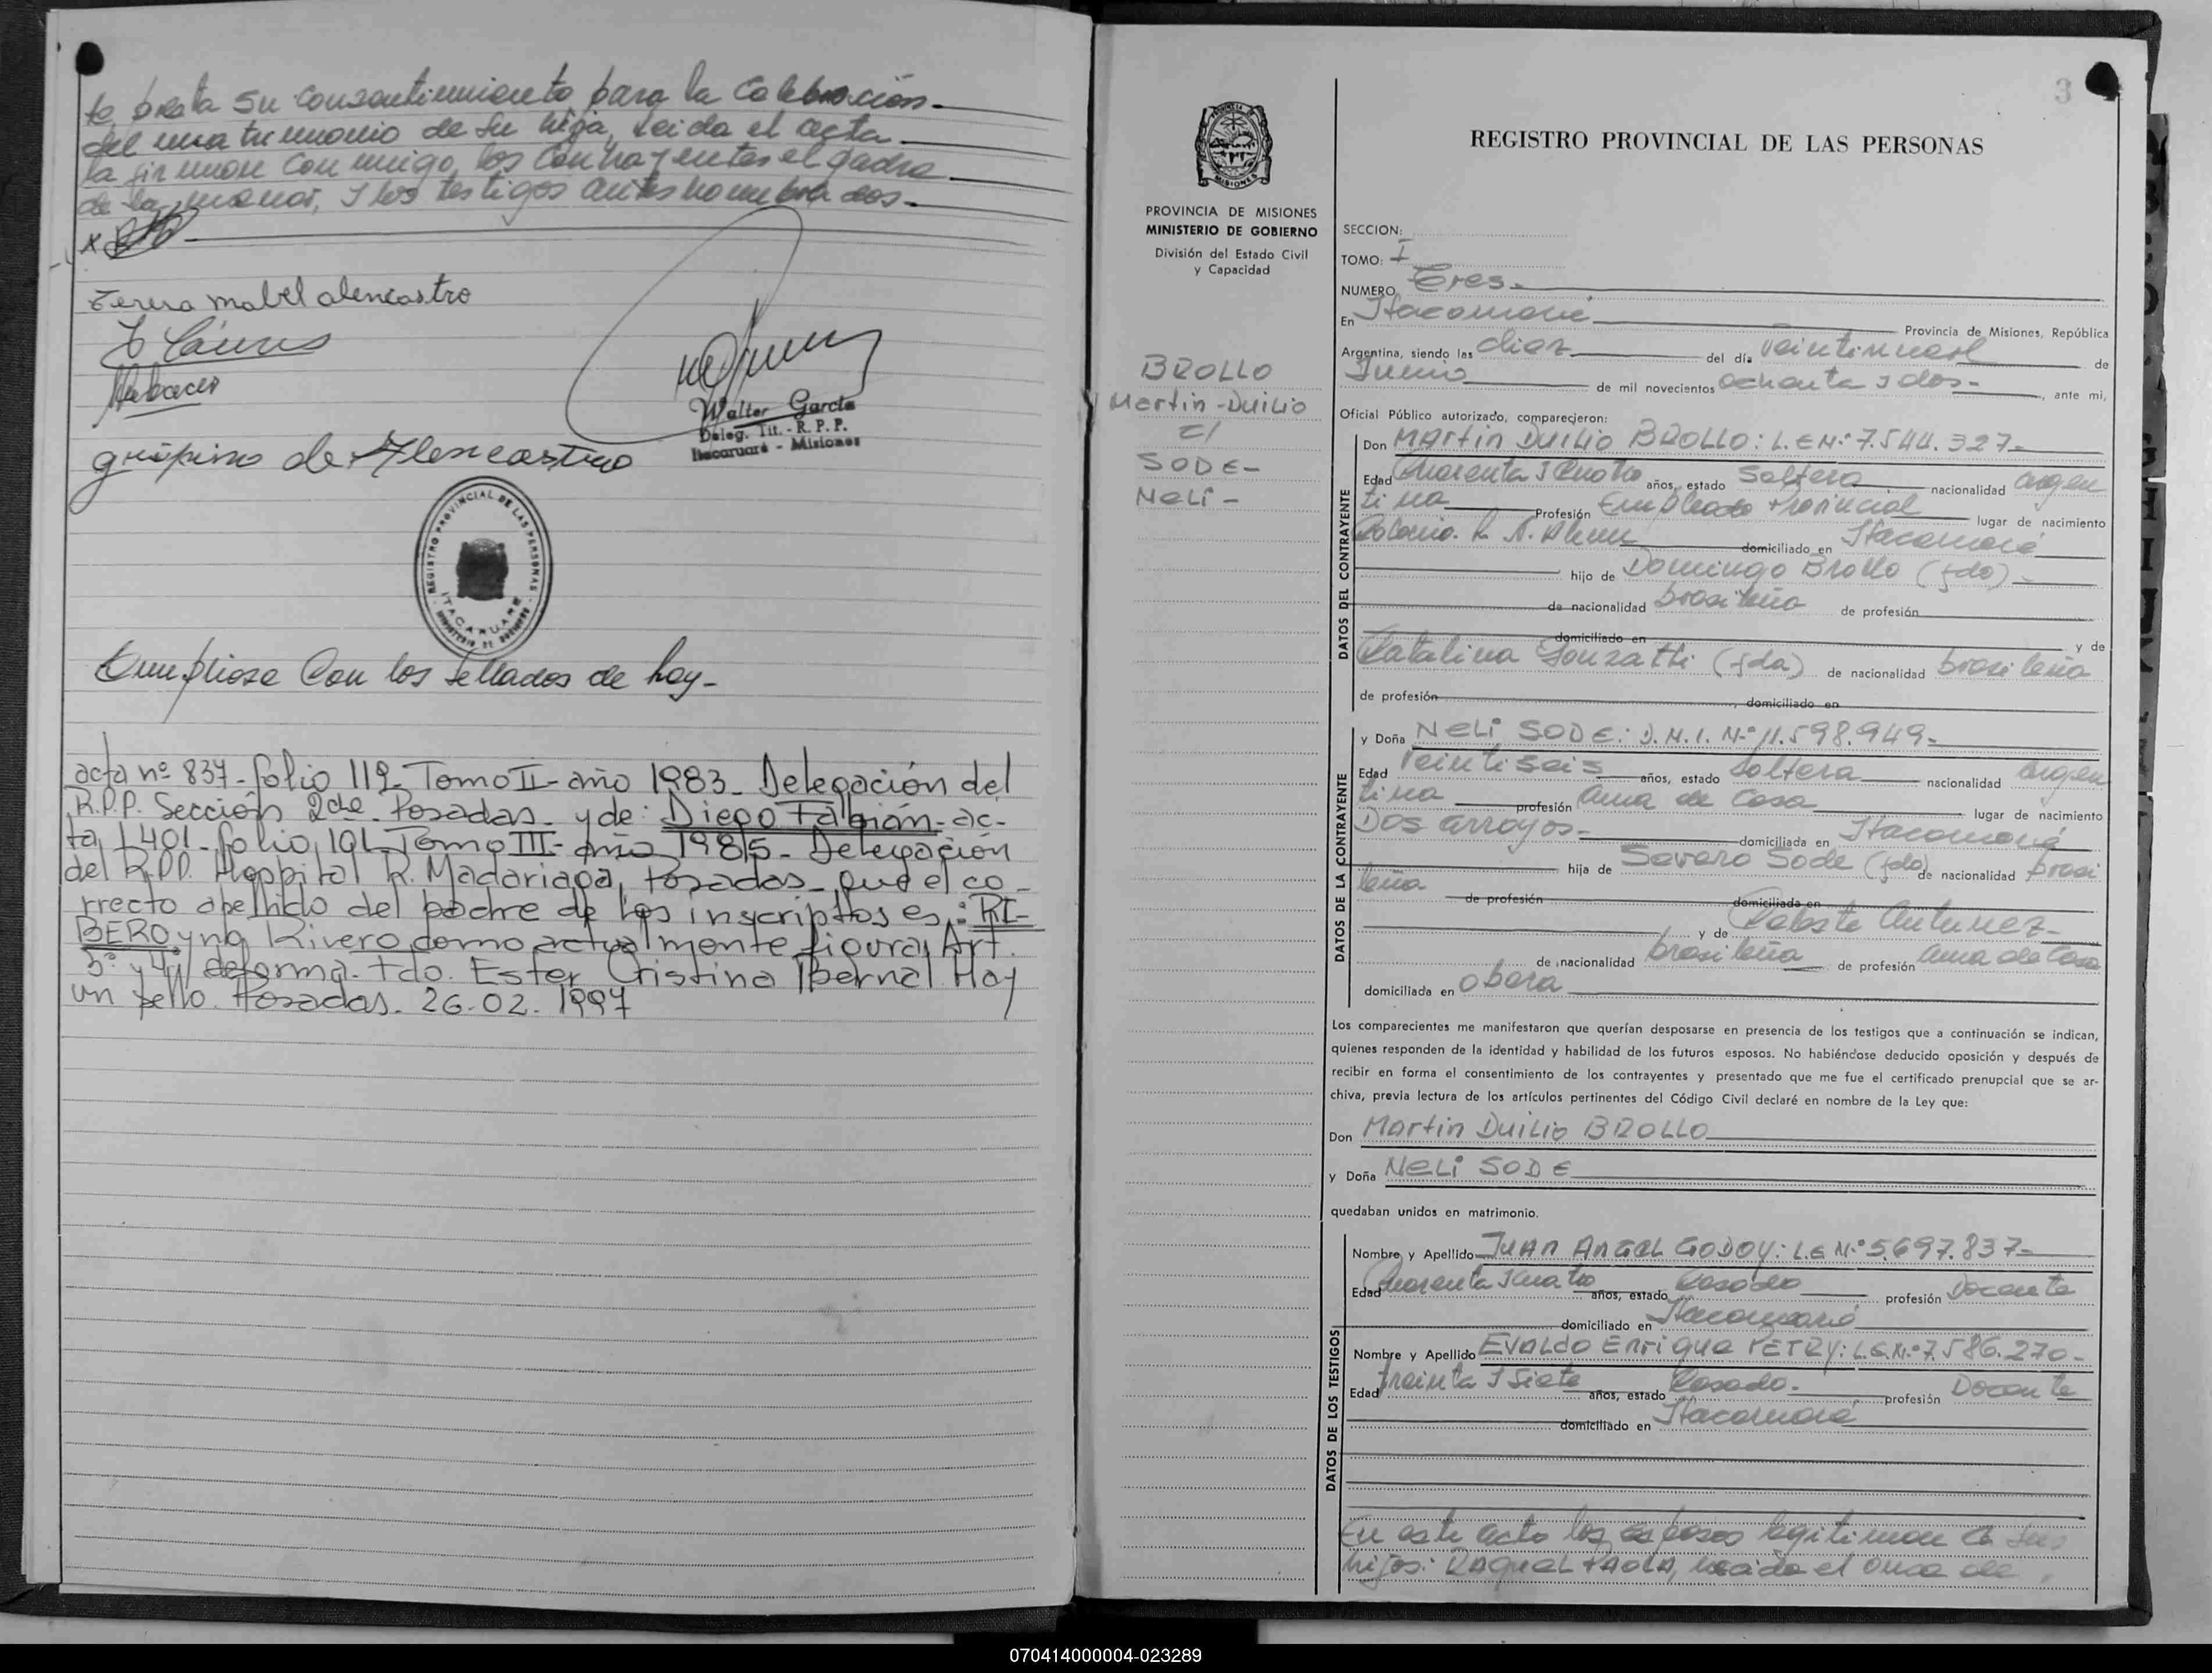 te presta su consentimiento para la celebración
del matrimonio de su hija, leida el acta
la firman conmigo, los contrayentes el padre
de la menor, y los testigos antes nombrados.
x
Teresa mabel alencastro
grispino de Alencastro
Walter García
Deleg. Tit. - R. P. P.
Itacaruaré - Misiones
REGISTRO PROVINCIAL DE LAS PERSONAS
ITACARUARE
MINISTERIO DE GOBIERNO
Cumpliose Con los sellados de hoy-
acta nº 837- folio 119- Tomo II- año 1983- Delegación del
R.P.P. Sección 2da. Posadas- y de: Diego Fabián- ac-
ta 1401- folio 101- Tomo III- año 1985- Delegación
del R.P.P. Hospital R. Madariaga, Posadas- que el co-
rrecto apellido del padre de los inscriptos es: RI-
BERO y no Rivero como actualmente figura, Art.
5º y 4º de forma- fdo. Ester Cristina Bernal Hay
un sello. Posadas. 26-02-1997
3
PROVINCIA DE MISIONES
MINISTERIO DE GOBIERNO
División del Estado Civil
y Capacidad
BROLLO
Martin-Duilio
c/
SODE-
Neli-
REGISTRO PROVINCIAL DE LAS PERSONAS
SECCION:
TOMO: I
NUMERO Tres-
En Itacaruaré Provincia de Misiones, República
Argentina, siendo las diez del día veintinueve de
Junio de mil novecientos ochenta y dos- , ante mi,
Oficial Público autorizado, comparecieron:
DATOS DEL CONTRAYENTE
Don Martin Duilio BROLLO: L.E Nº 7.544.327-
Edad Cuarenta y Cuatro años, estado Soltero nacionalidad argen
tina Profesión Empleado Provincial lugar de nacimiento
Colonia. L. N. Alem domiciliado en Itacaruaré
hijo de Domingo Brollo (fdo)-
de nacionalidad brasileña de profesión
domiciliado en y de
Catalina (fda) de nacionalidad brasileña
de profesión , domiciliado en
DATOS DE LA CONTRAYENTE
y Doña NELI SODE: D.N.I. Nº 11.598.949-
Edad veintiseis años, estado Soltera nacionalidad argen
tina profesión ama de Casa lugar de nacimiento
Dos arroyos- domiciliada en Itacaruaré
hija de Severo Sode (fdo) de nacionalidad brasi
leña de profesión domiciliada en
y de Celeste Antunez-
de nacionalidad brasileña de profesión ama de Casa
domiciliada en Obera
Los comparecientes me manifestaron que querían desposarse en presencia de los testigos que a continuación se indican,
quienes responden de la identidad y habilidad de los futuros esposos. No habiéndose deducido oposición y después de
recibir en forma el consentimiento de los contrayentes y presentado que me fue el certificado prenupcial que se ar-
chiva, previa lectura de los artículos pertinentes del Código Civil declaré en nombre de la Ley que:
Don Martin Duilio BROLLO
y Doña NELI SODE
quedaban unidos en matrimonio.
DATOS DE LOS TESTIGOS
Nombre y Apellido JUAN ANGEL GODOY: L.E Nº 5.697.837-
Edad Cuarenta y Cuatro años, estado Casado profesión Docente
domiciliado en Itacaruaré
Nombre y Apellido EVALDO Enrique PETRY: L.E.Nº 7.586.270-
Edad treinta y Siete años, estado Casado. profesión Docente
domiciliado en Itacaruaré
En este acto los esposos legitiman a sus
hijos: RAQUEL PAOLA, nacida el once de
070414000004-023289